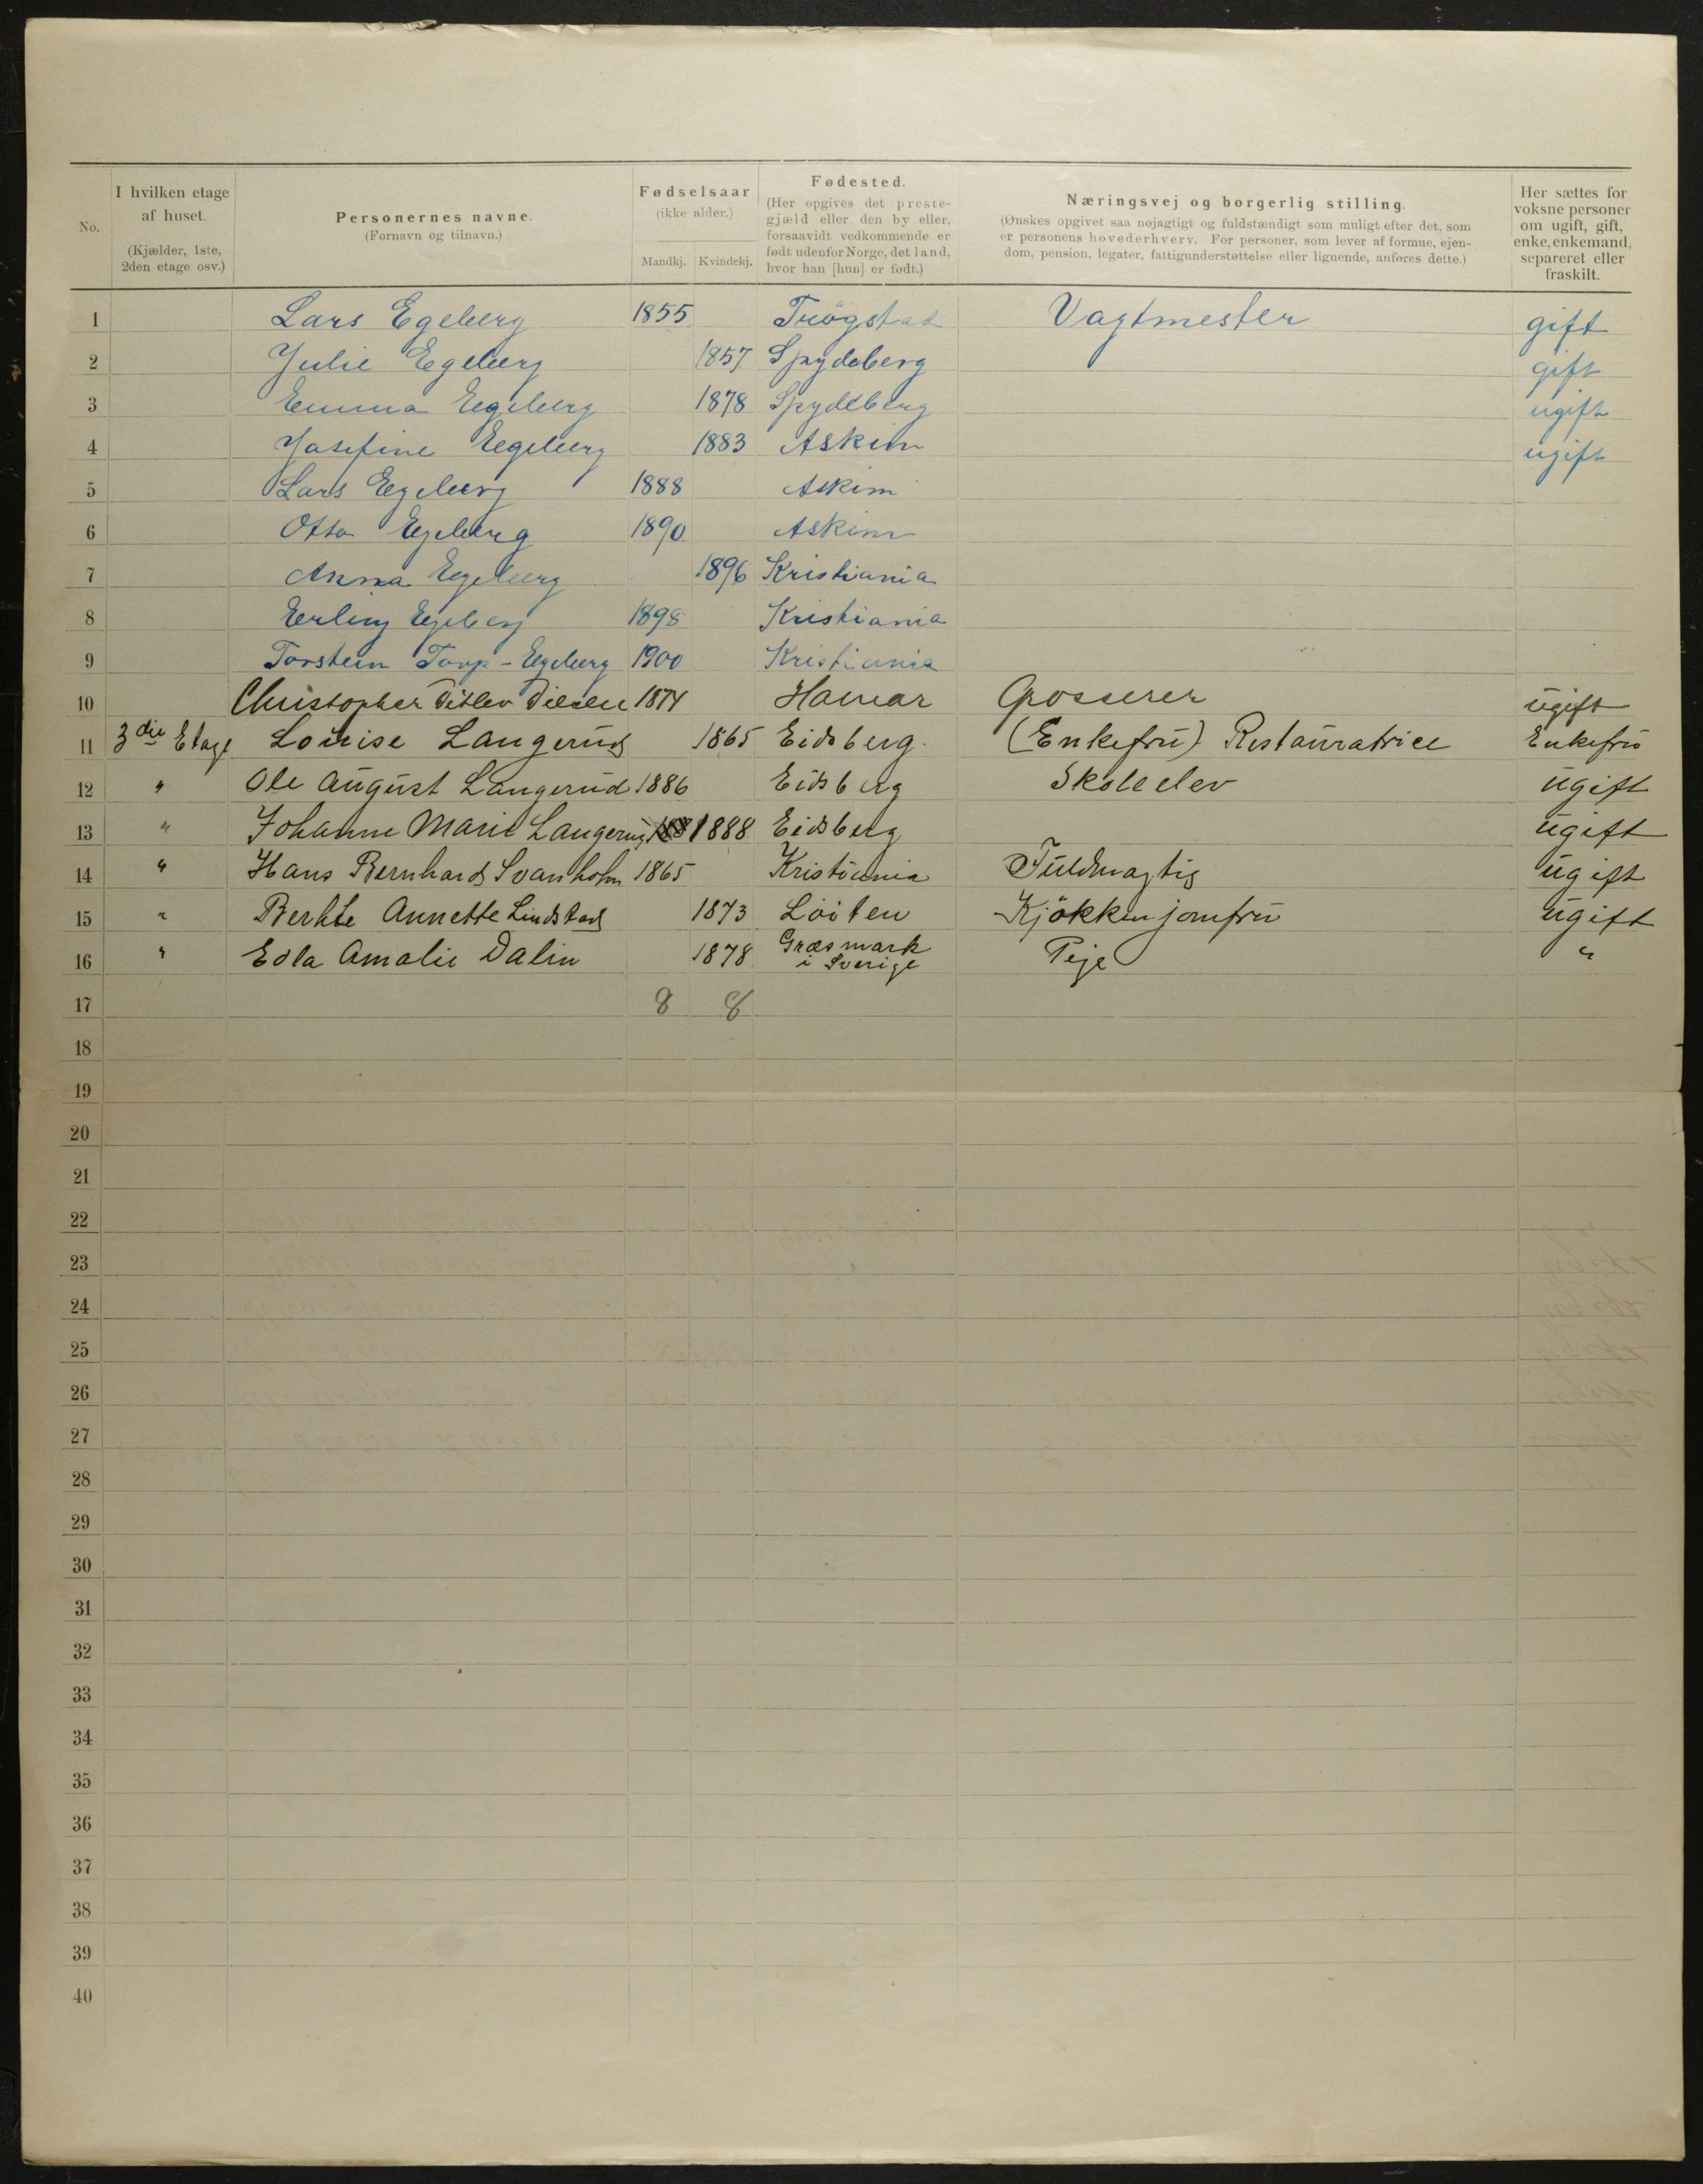 No.
I hvilken etage
af huset.
(Kjælder, 1ste,
2den etage osv.)
Personernes navne.
(Fornavn og tilnavn.)
Fødselsaar
(ikke alder.)
Mandkj. Kvindekj.
Fødested.
(Her opgives det preste-
gjæld eller den by eller,
forsaavidt vedkommende er
født udenfor Norge, det land,
hvor han [hun] er født.)
Næringsvej og borgerlig stilling.
(Ønskes opgivet saa nøjagtigt og fuldstændigt som muligt efter det, som
er personens hovederhverv. For personer, som lever af formue, ejen-
dom, pension, legater, fattigunderstøttelse eller lignende, anføres dette.)
Her sættes for
voksne personer
om ugift, gift,
enke, enkemand,
separeret eller
fraskilt.
1 Lars Egeberg 1855 Trögstad Vagtmester gift
2 Julie Egeberg 1857 Spydeberg gift
3 Emma Egeberg 1878 Spydeberg ugift
4 Josefine Egeberg 1883 Askim ugift
5 Lars Egeberg 1888 Askim
6 Otto Egeberg 1890 Askim
7 Anna Egeberg 1896 Kristiania
8 Erling Egeberg 1898 Kristiania
9 Torstein Torp-Egeberg 1900 Kristiania
10 Christopher Ditlev 1874 Hamar Grosserer ugift
11 3die Etage Louise Langerud 1865 Eidsberg. (Enkefrü) Restaüratrice Enkefrü
12 " Ole Aügüst Langerüd 1886 Eidsberg Skoleelev ügift
13 " Johanne Marie Langerud 1888 Eidsberg ügift
14 " Hans Bernhard Svanholm 1865 Kristiania Füldmagtig ügift
15 " Berhte Annette Lindstad 1873 Löiten Kjökkenjomfrü ügift
16 " Edla Amalie Dalin 1878 Græsmark
i Sverige Pige "
17 8 8
18
19
20
21
22
23
24
25
26
27
28
29
30
31
32
33
34
35
36
37
38
39
40